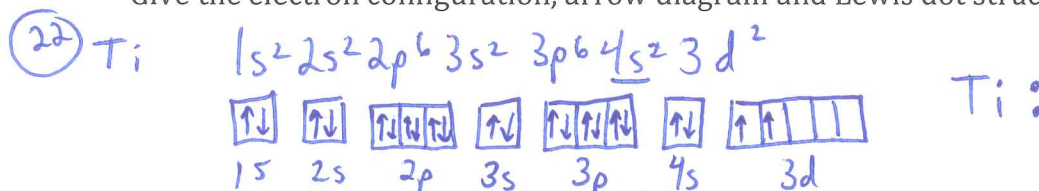 Give the electron configuration, arrow diagram and Lewis dot
22 Ti 1s² 2s² 2p⁶ 3s² 3p⁶ 4s² 3d²
Ti :
↑↓ ↑↓ ↑↓ ↑↓ ↑↓ ↑↓ ↑↓ ↑↓ ↑↓ ↑↓ ↑ ↑
1s 2s 2p 3s 3p 4s 3d